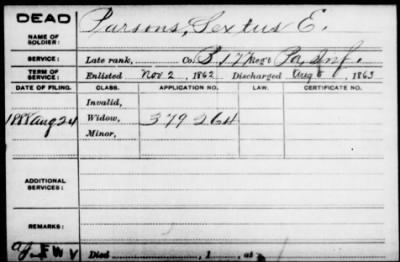 DEAD
NAME OF SOLDIER: Parsons, Sextus E.
SERVICE: Late rank, Co. B 177 Reg't Pa. Inf.
TERM OF SERVICE: Enlisted Nov 2, 1862 Discharged Aug 5, 1863
DATE OF FILING. CLASS. APPLICATION NO. LAW. CERTIFICATE NO.
Invalid,
1888 Aug 24 Widow, 379264
Minor,
ADDITIONAL SERVICES:
REMARKS:
Died , 1 , at